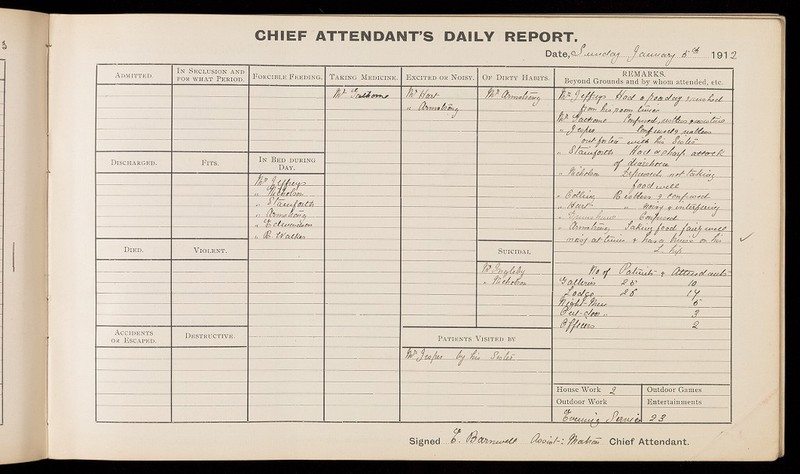 CHIEF ATTENDANT'S DAILY REPORT.
Date, Sunday January 5th 1912
ADMITTED.
IN SECLUSION AND FOR WHAT PERIOD.
FORCIBLE FEEDING.
TAKING MEDICINE.
EXCITED OR NOISY.
OF DIRTY HABITS.
REMARKS.
Beyond Grounds and by whom attended, etc.
Mr
Mr Hart
" Armstrong
Mr Armstrong
Mr Jeffreys Had a poor day
from his room
Mr Confused, restless &
" Confused & restless
out for tea with his Sister
" Staniforth Had a sharp attack
of diarrhoea
" Nicholson Depressed not taking
food well
" Collins Restless & confused
" Hart " noisy & interfering
" Confused
" Armstrong Taking food fairly well
noisy at times & has a bruise on his
L. hip
DISCHARGED.
FITS.
IN BED DURING DAY.
Mr Jeffreys
" Nicholson
" Staniforth
" Armstrong
" Edmondson
" R. Walker
DIED.
VIOLENT.
SUICIDAL
Mr Ingleby
" Nicholson
ACCIDENTS OR ESCAPED.
DESTRUCTIVE.
PATIENTS VISITED BY
Mr by his Sister
No of Patients & Attendants
Galleries 25 10
Lodge 26 17
Night Men 5
Out-door " 3
Officers 2
House Work 2
Outdoor Games
Outdoor Work
Entertainments
Evening Service 23
Signed E. Barnwell Assist: Matron Chief Attendant.